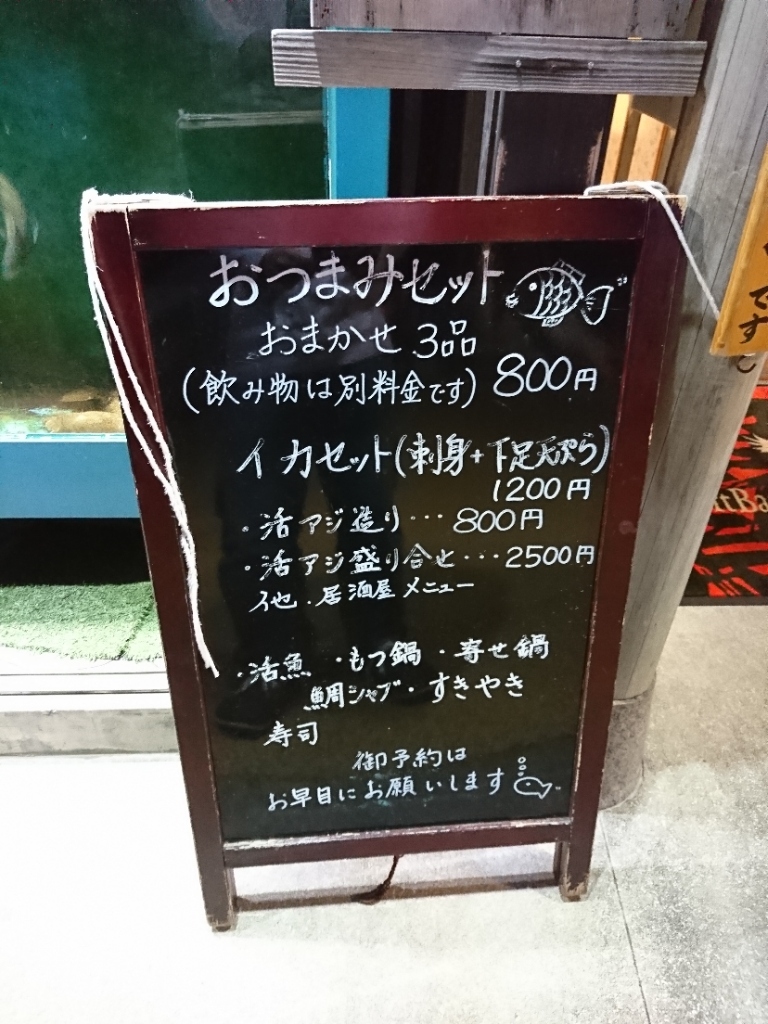 おつまみセット
おまかせ 3品
(飲み物は別料金です) 800円
イカセット(刺身+下足天ぷら)
1200円
・活アジ造り・・・800円
・活アジ盛り合せ・・・2500円
他・居酒屋メニュー
・活魚 ・もつ鍋・寄せ鍋
鯛シャブ・すきやき
寿司
御予約は
お早目にお願いします
です